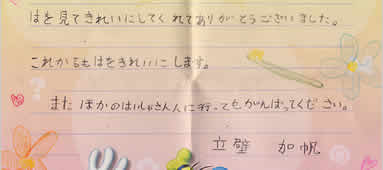 はを見てきれいにしてくれてありがとうございました。
これからもはをきれいにします。
またほかのはいしゃさん人に行ってもがんばってください。
立壁 加帆